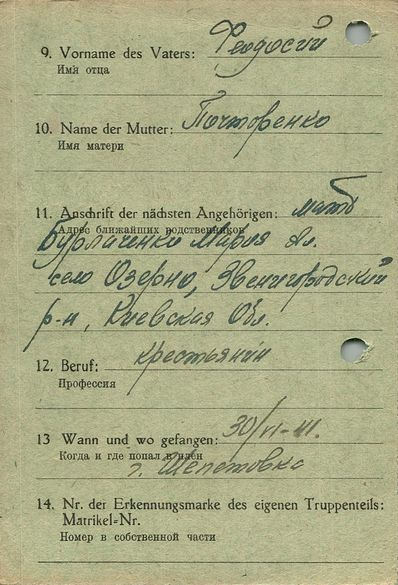 9. Vorname des Vaters: Феодосий
Имя отца
10. Name der Mutter: Почтовенко
Имя матери
11. Anschrift der nächsten Angehörigen: мать
Адрес ближайших родственников
Бурлаченко Мария Ал.
село Озерно, Звенигородский
р-н, Киевская Обл.
12. Beruf: крестьянин
Профессия
13 Wann und wo gefangen: 30/VI-41.
Когда и где попал в плен
г. Шепетовка
14. Nr. der Erkennungsmarke des eigenen Truppenteils:
Matrikel=Nr.
Номер в собственной части